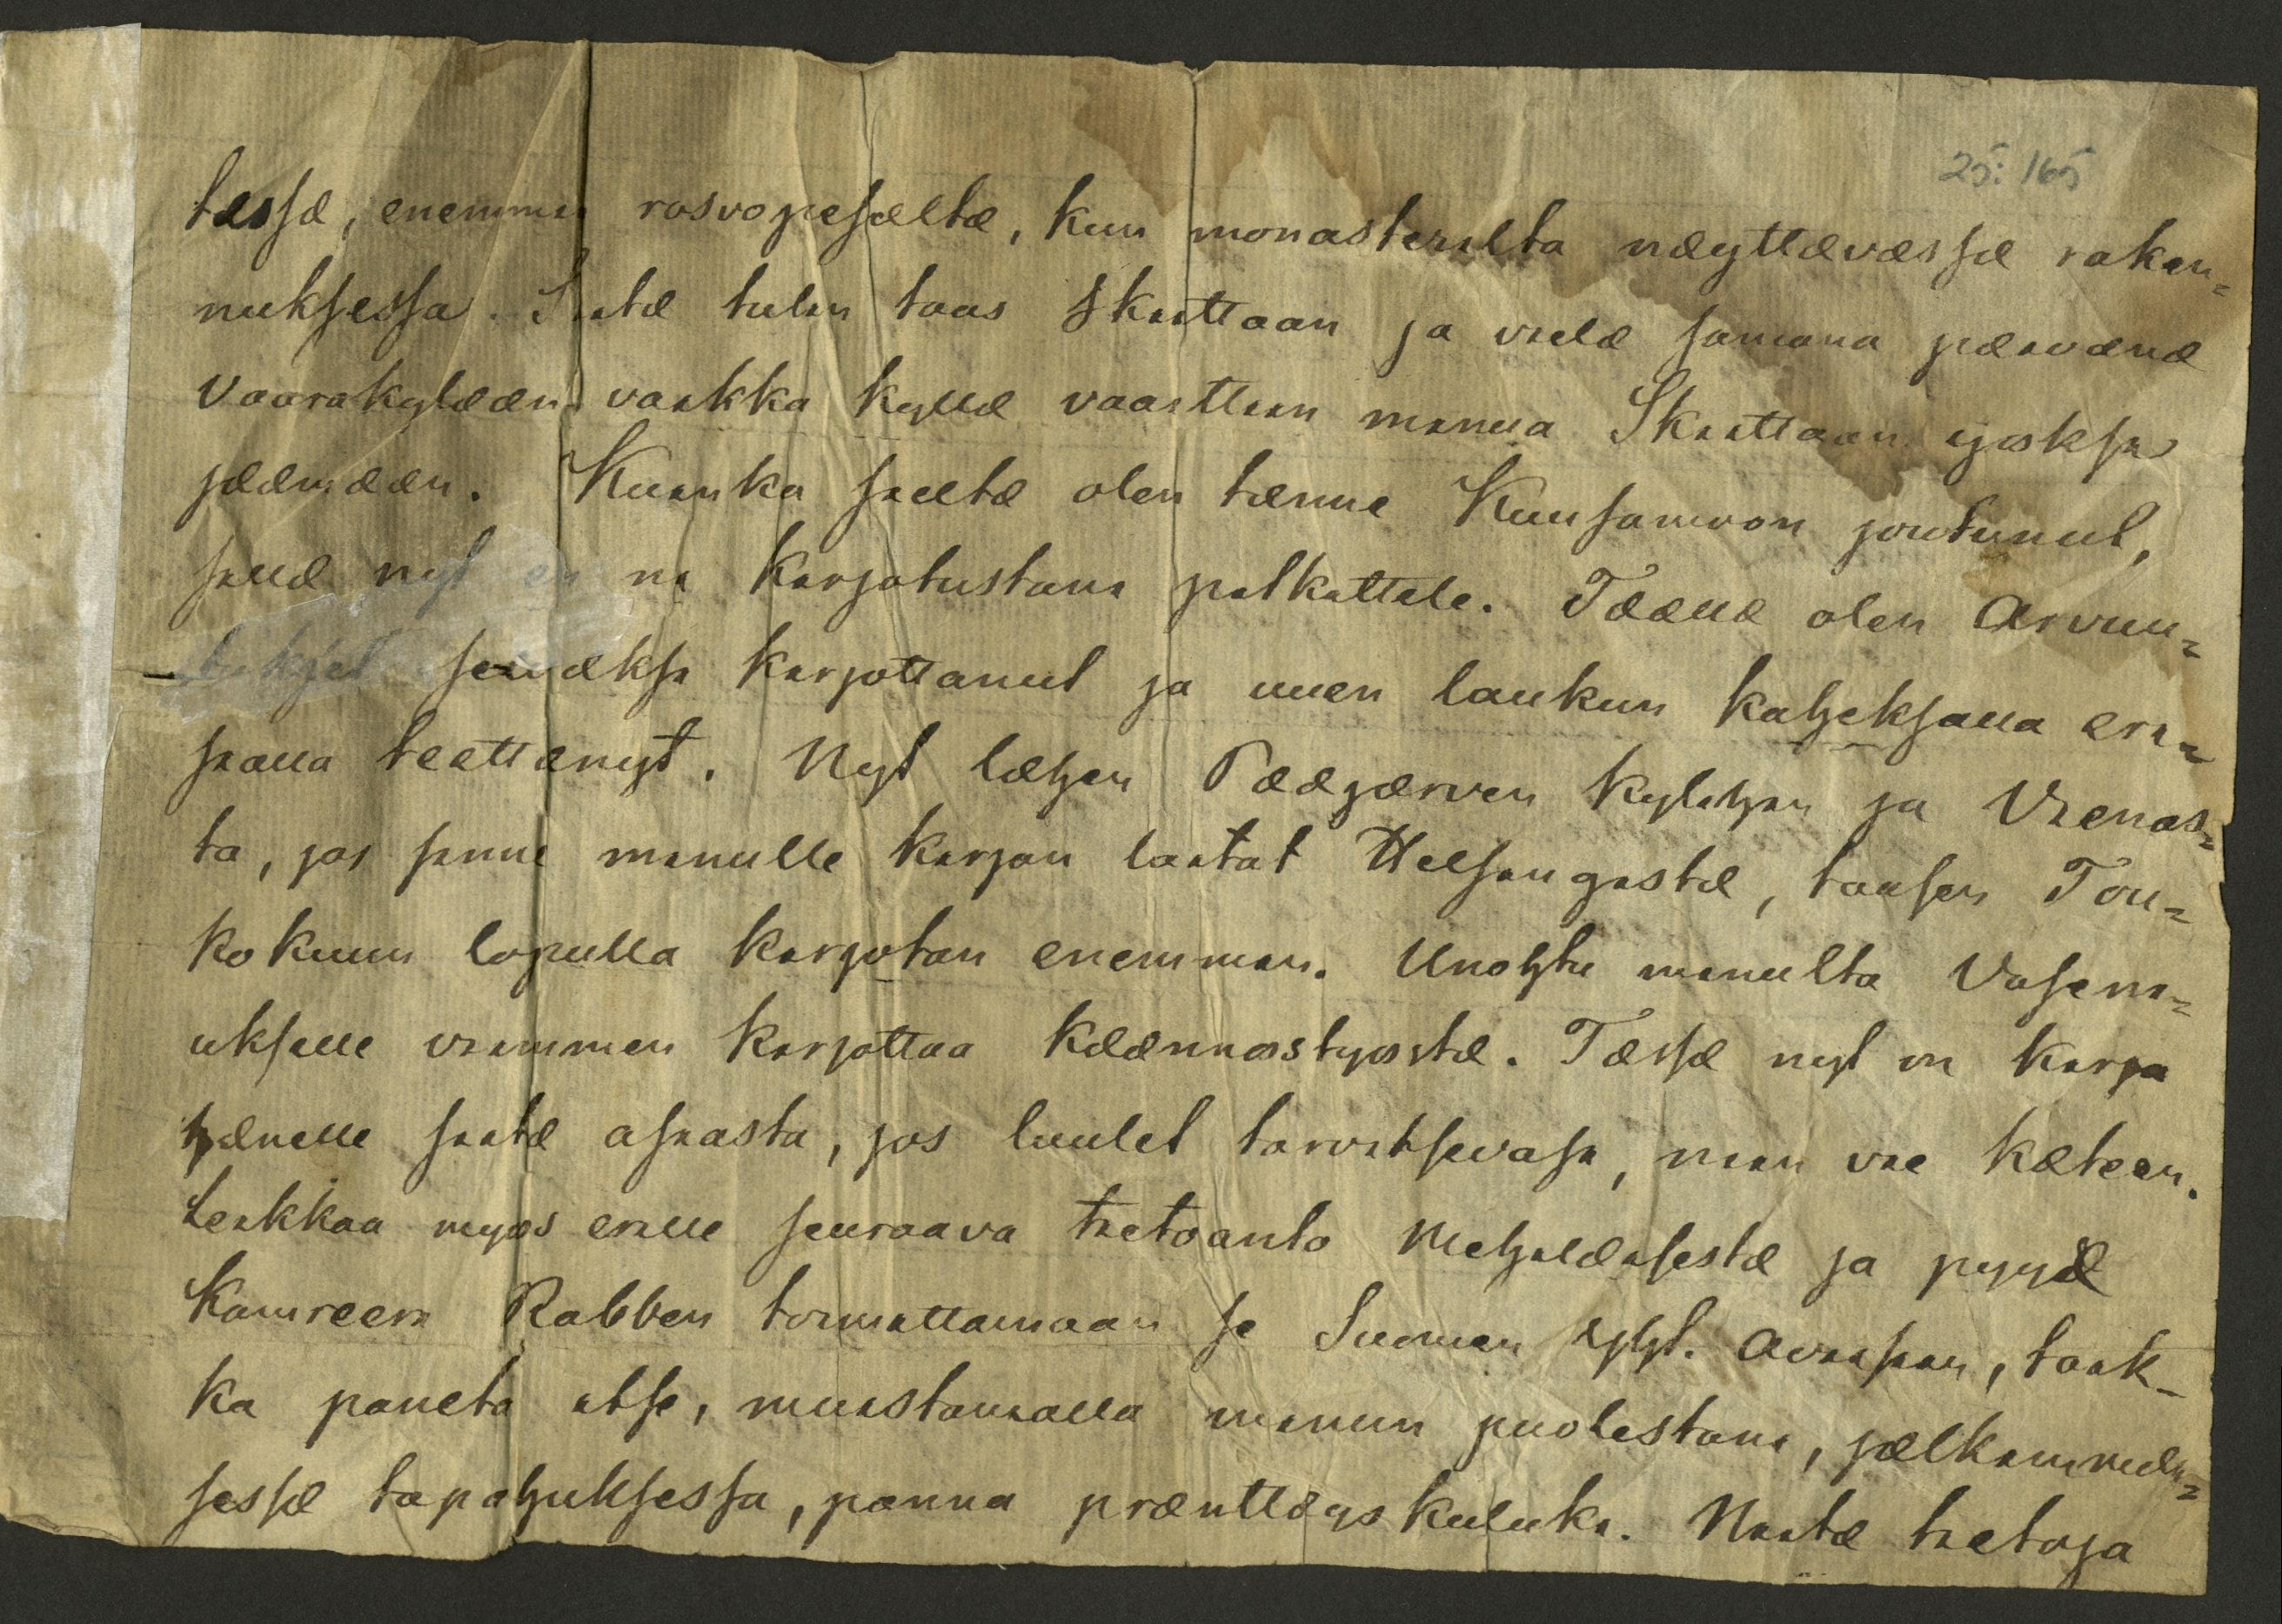 25: 165
tæssæ, enemmin rosvopesæltæ, kuin monasterilta næyttævæssæ raken=
nuksessa. Siitæ tulin taas Skiittaan ja vielæ samana pæivænæ
Vaarakylææn, vaikka kyllæ vaattiin minua Skiittaan yöksi
jææmææn. Kuinka sieltæ olen tænne Kuusamoon joutunut,
siitæ nyt en na kirjotustani pitkittele. Tæællæ olen Arvuu=
tukset seiræksi kirjottanut ja uuen laukun kaheksalla eri=
salla teettænyt. Nyt læhen Pææjærven kylihin ja Vienas=
ta, jos sinne minulle kirjan laitat Helsingistæ, taasen Tou=
kokuun lopulla kirjotan enemmin. Unohtu minulta Vaseni=
ukselle viimmen kirjottaa kæænnöstyöstæ. Tæssæ nyt on kirja
hænelle siitæ asiasta, jos luulet tarvitsevasi, niin vie kæteen.
Leikkaa myös erille seuraava tietoanto Mehiläisestæ ja pyyæ
Kamreeri Rabben toimittamaan se Suomen yht. Aviisiin, taik-
ka paneta itse, muistamalla minun puolestani, jælkimmæi=
sessæ tapahuksessa, panna prænttæys kuluki. Niitæ tietoja